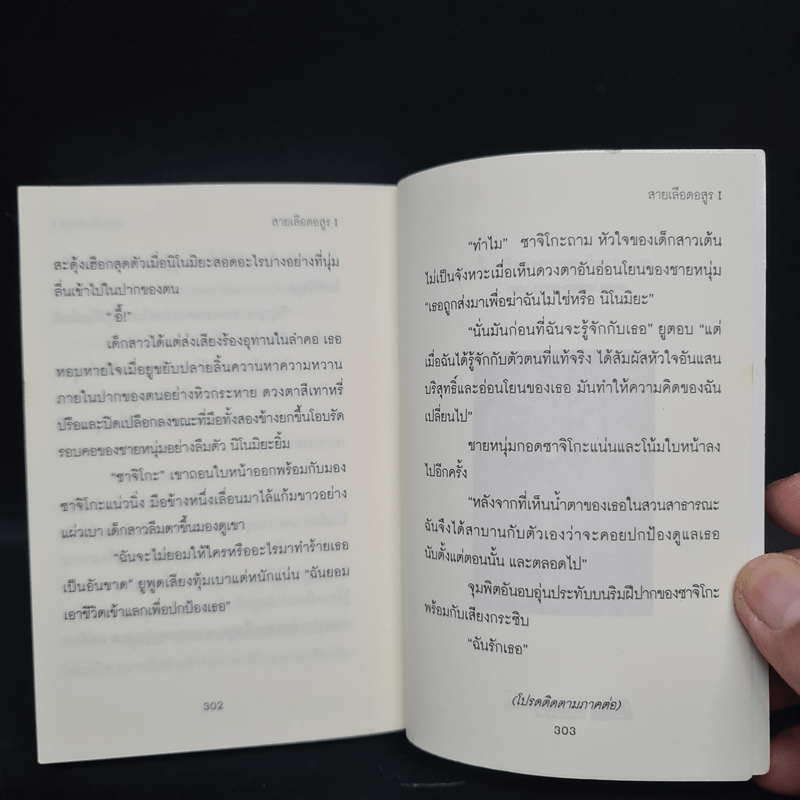 สายเลือดอสูร I
สะดุ้งเฮือกสุดตัวเมื่อนิโนมิยะสอดอะไรบางอย่างที่นุ่ม
ลื่นเข้าไปในปากของตน
“อื้!”
เด็กสาวได้แต่ส่งเสียงร้องอุทานในลำคอ เธอ
หอบหายใจเมื่อยูขยับปลายลิ้นควานหาความหวาน
ภายในปากของตนอย่างหิวกระหาย ดวงตาสีเทาหรี่
ปรือและปิดเปลือกลงขณะที่มือทั้งสองข้างยกขึ้นโอบรัด
รอบคอของชายหนุ่มอย่างลืมตัว นิโนมิยะยิ้ม
“ซาจิโกะ” เขาถอนใบหน้าออกพร้อมกับมอง
ซาจิโกะแน่วนิ่ง มือข้างหนึ่งเลื่อนมาไล้แก้มขาวอย่าง
แผ่วเบา เด็กสาวลืมตาขึ้นมองดูเขา
“ฉันจะไม่ยอมให้ใครหรืออะไรมาทำร้ายเธอ
เป็นอันขาด” ยูพูดเสียงทุ้มเบาแต่หนักแน่น “ฉันยอม
เอาชีวิตเข้าแลกเพื่อปกป้องเธอ”
302
สายเลือดอสูร I
“ทำไม” ซาจิโกะถาม หัวใจของเด็กสาวเต้น
ไม่เป็นจังหวะเมื่อเห็นดวงตาอันอ่อนโยนของชายหนุ่ม
“เธอถูกส่งมาเพื่อฆ่าฉันไม่ใช่หรือ นิโนมิยะ”
“นั่นมันก่อนที่ฉันจะรู้จักกับเธอ” ยูตอบ “แต่
เมื่อฉันได้รู้จักกับตัวตนที่แท้จริง ได้สัมผัสหัวใจอันแสน
บริสุทธิ์และอ่อนโยนของเธอ มันทำให้ความคิดของฉัน
เปลี่ยนไป”
ชายหนุ่มกอดซาจิโกะแน่นและโน้มใบหน้าลง
ไปอีกครั้ง
“หลังจากที่เห็นน้ำตาของเธอในสวนสาธารณะ
ฉันจึงได้สาบานกับตัวเองว่าจะคอยปกป้องดูแลเธอ
นับตั้งแต่ตอนนั้น และตลอดไป”
จุมพิตอันอบอุ่นประทับบนริมฝีปากของซาจิโกะ
พร้อมกับเสียงกระซิบ
“ฉันรักเธอ”
(โปรดติดตามภาคต่อ)
303